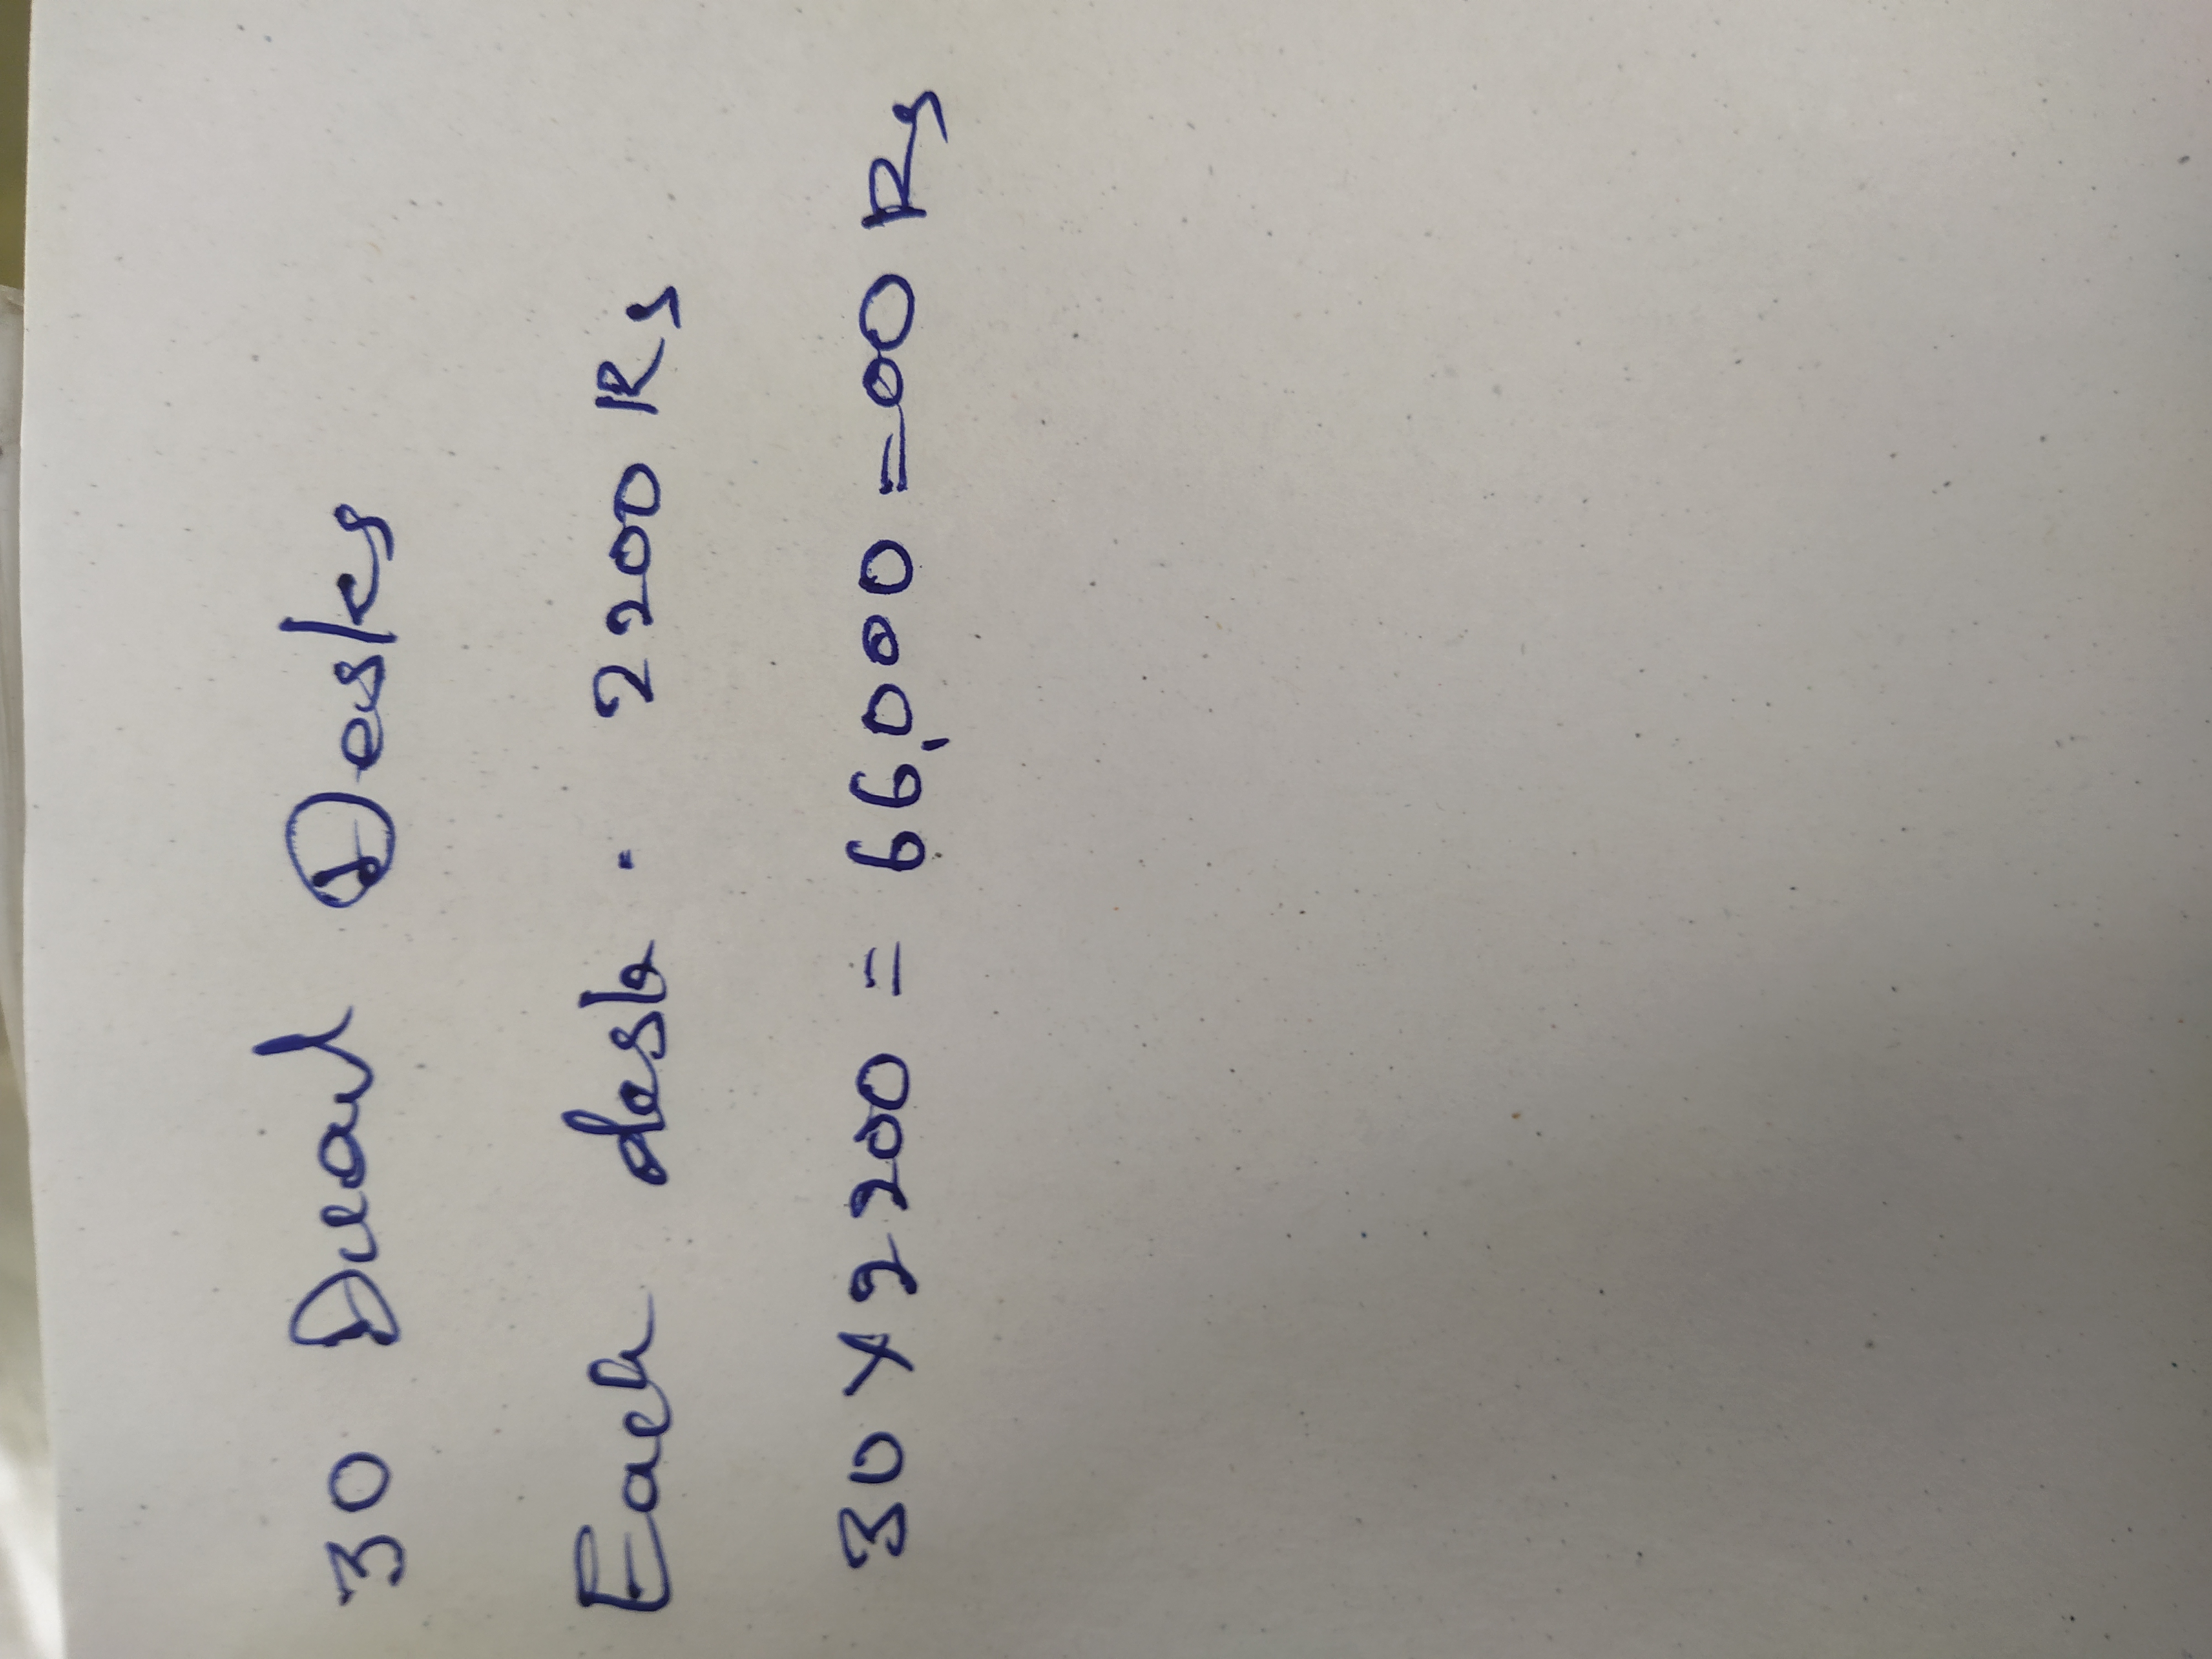 30 Dual Desks
Each desk . 2200 Rs
30 x 2200 = 66,000 = 00 Rs